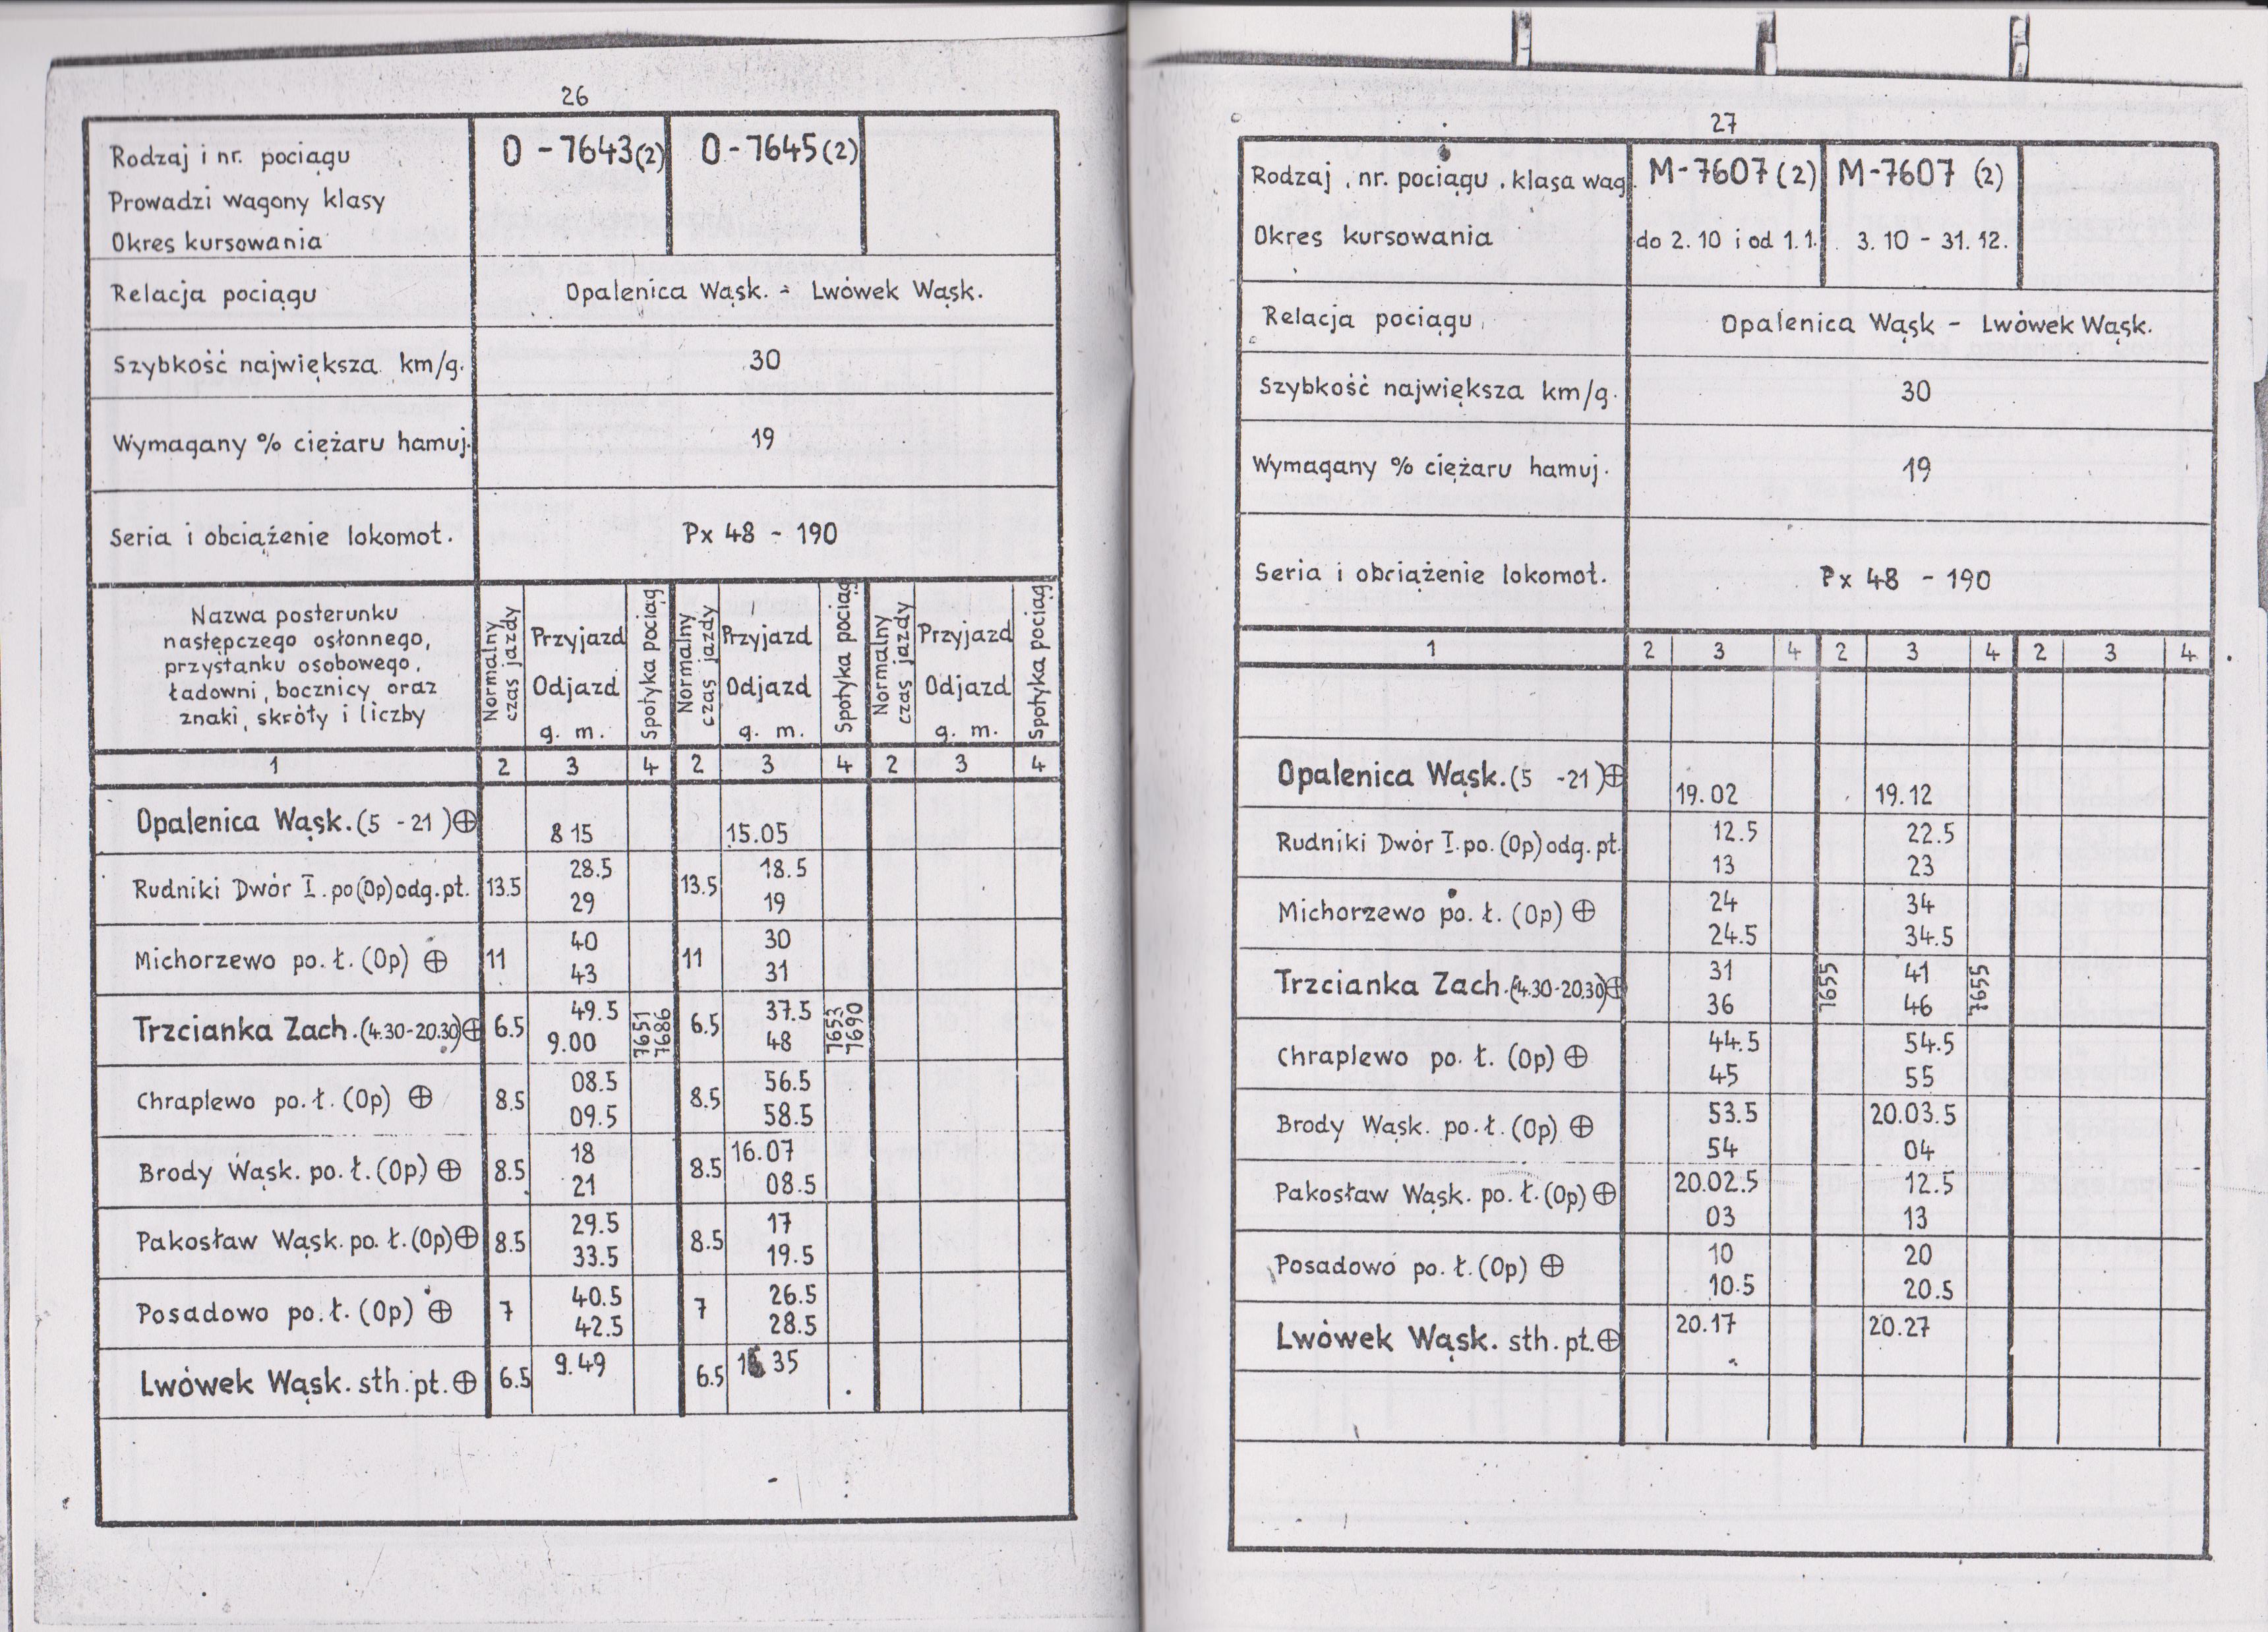 26
Rodzaj i nr. pociągu O - 7643(2) O - 7645(2)
Prowadzi wagony klasy
Okres kursowania
Relacja pociągu Opalenica Wąsk. - Lwówek Wąsk.
Szybkość największa km/g. 30
Wymagany % ciężaru hamuj. 19
Seria i obciążenie lokomot. Px 48 - 190
Nazwa posterunku
następczego osłonnego,
przystanku osobowego,
ładowni, bocznicy oraz
znaki, skróty i liczby
Normalny czas jazdy
Przyjazd
Odjazd
g. m.
Spotyka pociąg
Normalny czas jazdy
Przyjazd
Odjazd
g. m.
Spotyka pociąg
Normalny czas jazdy
Przyjazd
Odjazd
g. m.
Spotyka pociąg
1 2 3 4 2 3 4 2 3 4
Opalenica Wąsk. (5 - 21) ⊕ 8 15 15.05
28.5 18.5
Rudniki Dwór I. po(Op) odg. pt. 13.5 13.5
29 19
40 30
Michorzewo po. ł. (Op) ⊕ 11 11
43 31
49.5 37.5
Trzcianka Zach. (4.30-20.30) ⊕ 6.5 7651 7686 6.5 7653 7690
9.00 48
08.5 56.5
Chraplewo po. ł. (Op) ⊕ 8.5 8.5
09.5 58.5
18 16.07
Brody Wąsk. po. ł. (Op) ⊕ 8.5 8.5
21 08.5
29.5 17
Pakosław Wąsk. po. ł. (Op) ⊕ 8.5 8.5
33.5 19.5
40.5 26.5
Posadowo po. ł. (Op) ⊕ 7 7
42.5 28.5
9.49 35
Lwówek Wąsk. sth. pt. ⊕ 6.5 6.5
27
Rodzaj, nr. pociągu, klasa wag. M-7607 (2) M-7607 (2)
Okres kursowania do 2. 10 i od 1. 1. 3. 10 - 31. 12.
Relacja pociągu Opalenica Wąsk - Lwówek Wąsk.
Szybkość największa km/g. 30
Wymagany % ciężaru hamuj. 19
Seria i obciążenie lokomot. Px 48 - 190
1 2 3 4 2 3 4 2 3 4
Opalenica Wąsk. (5 - 21) ⊕ 19.02 19.12
12.5 22.5
Rudniki Dwór I. po. (Op) odg. pt.
13 23
24 34
Michorzewo po. ł. (Op) ⊕
24.5 34.5
31 41
Trzcianka Zach. (4.30-20.30) ⊕ 7655 7655
36 46
44.5 54.5
Chraplewo po. ł. (Op) ⊕
45 55
53.5 20.03.5
Brody Wąsk. po. ł. (Op) ⊕
54 04
20.02.5 12.5
Pakosław Wąsk. po. ł. (Op) ⊕
03 13
10 20
Posadowo po. ł. (Op) ⊕
10.5 20.5
20.17 20.27
Lwówek Wąsk. sth. pt. ⊕